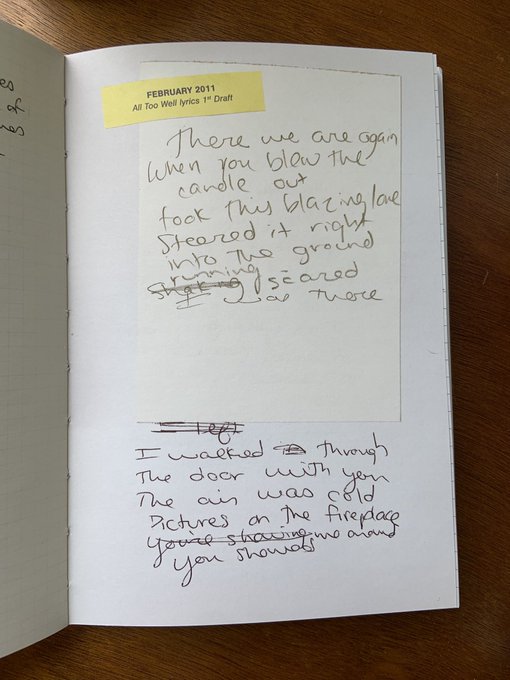 es
of
FEBRUARY 2011
All Too Well lyrics 1st Draft
There we are again
When you blew the
candle out
Took this blazing love
Steered it right
into the ground
running
shaking scared
I was there
left
I walked through
The door with you
The air was cold
Pictures on the fireplace
You're showing me around
You showed